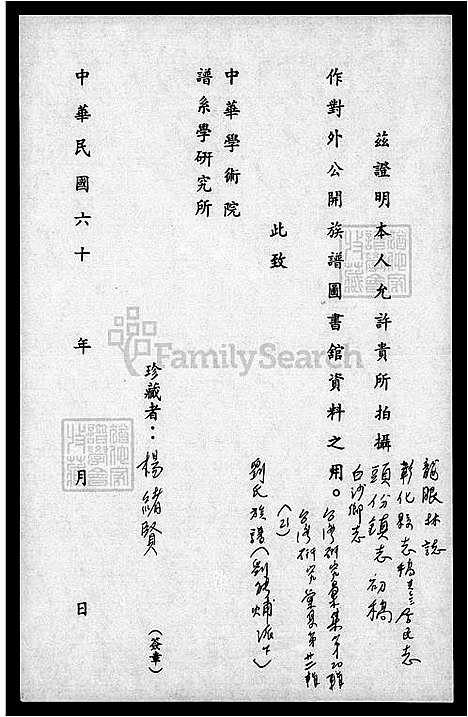 茲證明本人允許貴所拍攝
龍眼林誌
彰化縣志稿卷三居民志
頭份鎮志初稿
白沙鄉志
作對外公開族譜圖書館資料之用。
台灣研究彙集第
台灣研究彙集第廿二輯
(21)
劉氏族譜(劉
派下)
此致
中華學術院
譜系學研究所
珍藏者：楊緒賢
(簽章)
中華民國六十 年 月 日
FamilySearch